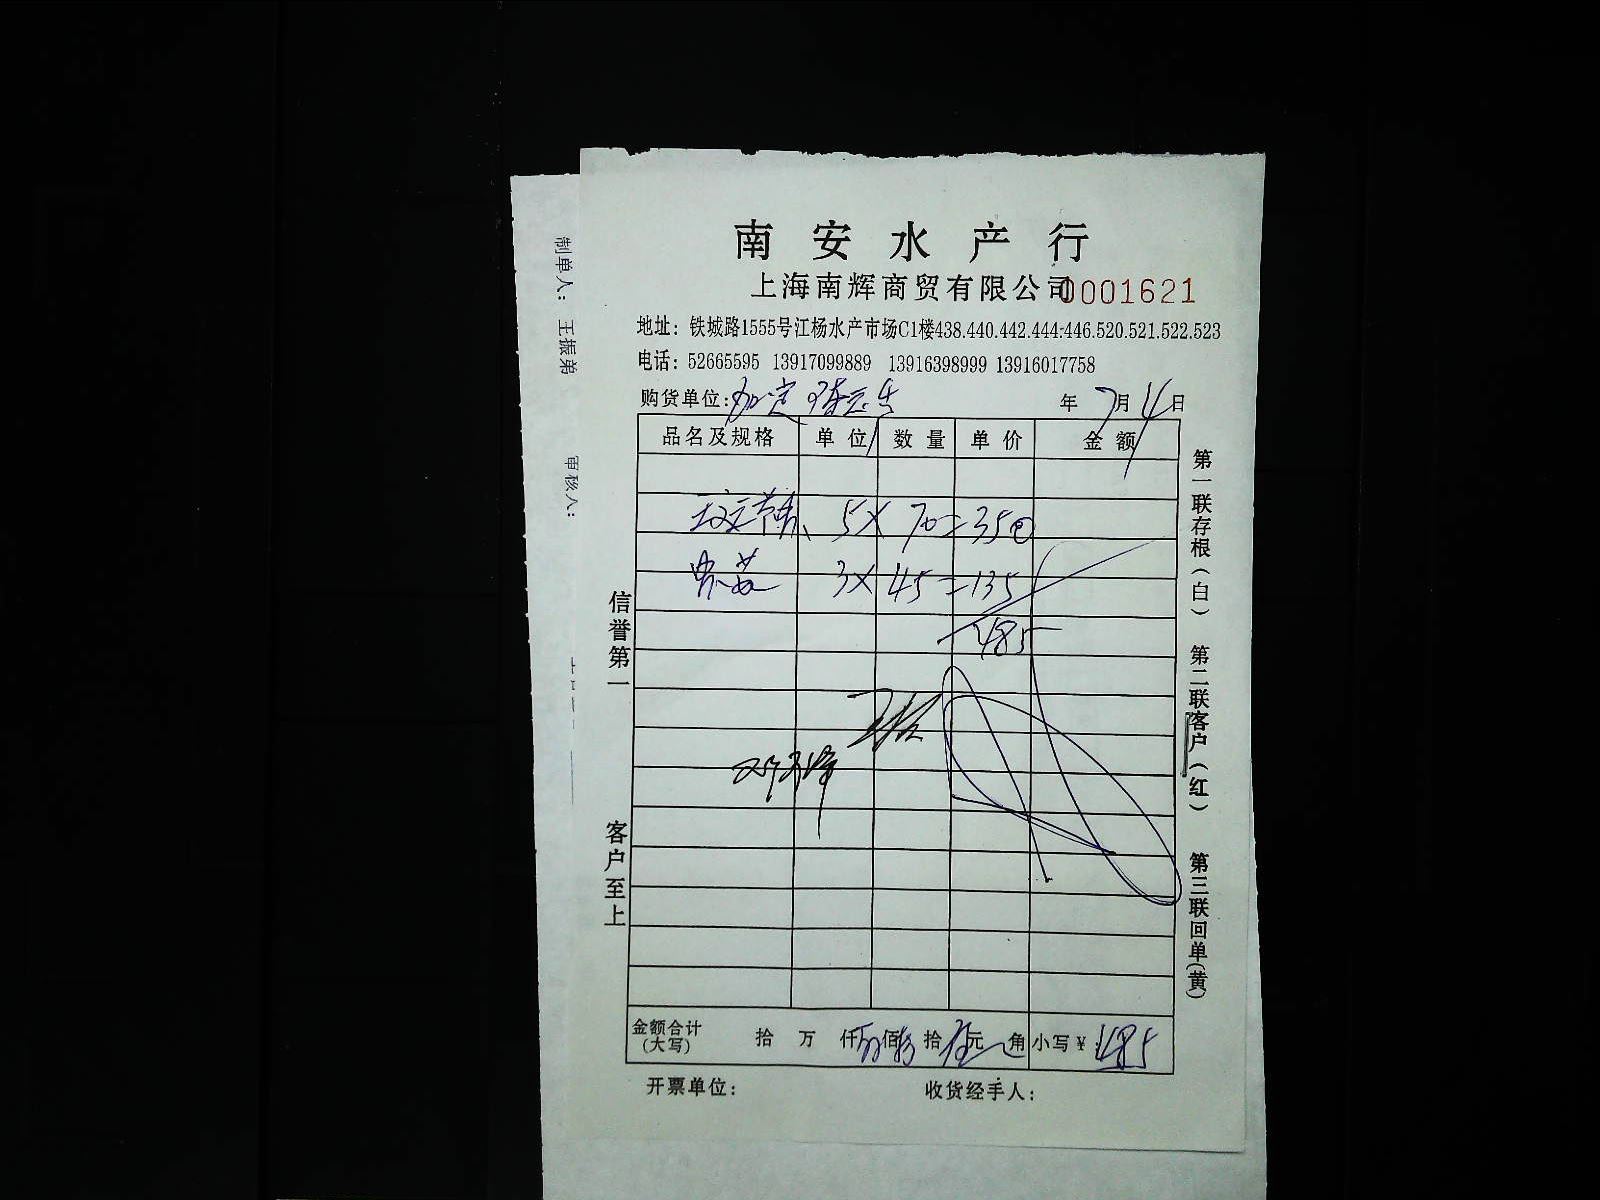 南安水产行
上海南辉商贸有限公司 0001621
地址：铁城路1555号江杨水产市场C1楼438.440.442.444.446.520.521.522.523
电话：52665595 13917099889 13916398999 13916017758
购货单位：加定 年 7月4日
品名及规格 单位 数量 单价 金额
5× 70=350
3× 45=135
485
金额合计(大写) 拾 万 仟 佰 拾 元 角 小写¥：485
开票单位： 收货经手人：
信誉第一
客户至上
第一联存根(白)
第二联客户(红)
第三联回单(黄)
制单人：王振弟
审核人：